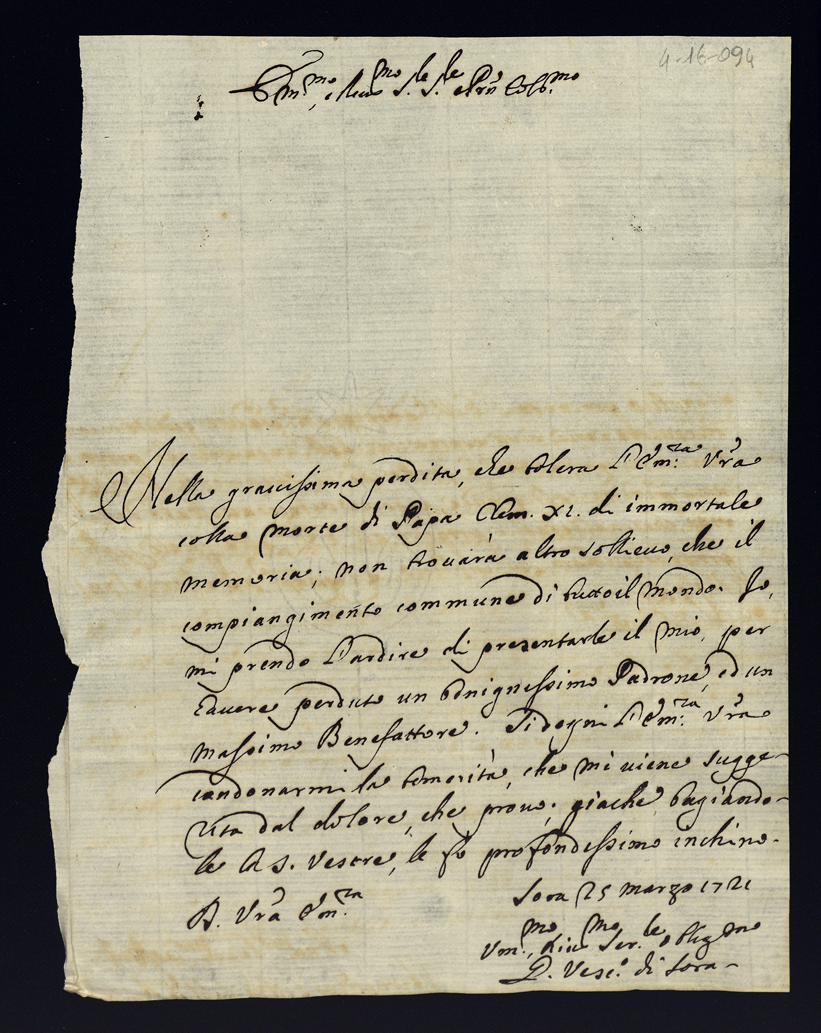 4-16-094
Em.mo, e Reu.mo S.le S.le e Prñ Col.mo
Nella grauissima perdita, che tolera L'Em.za Vra
colla morte di Papa Clem. XI. di immortale
memoria; non trouarà altro sollieuo, che il
compiangimento commune di tutto il Mondo. Io,
mi prendo L'ardire di presentarle il mio, per
hauere perduto un benignissimo Padrone, ed un
Massimo Benefattore. Si degni L'Em.za Vra
condonarmi la temerità, che mi viene sugge-
rita dal dolore, che prouo; giache, bagiando-
le la S. Veste, le fò profondissimo inchino.
Sora 25 marzo 1721
D. Vra Em.za
Vm.mo, Diu.mo Ser.le obligmo
Vesc.o di Sora